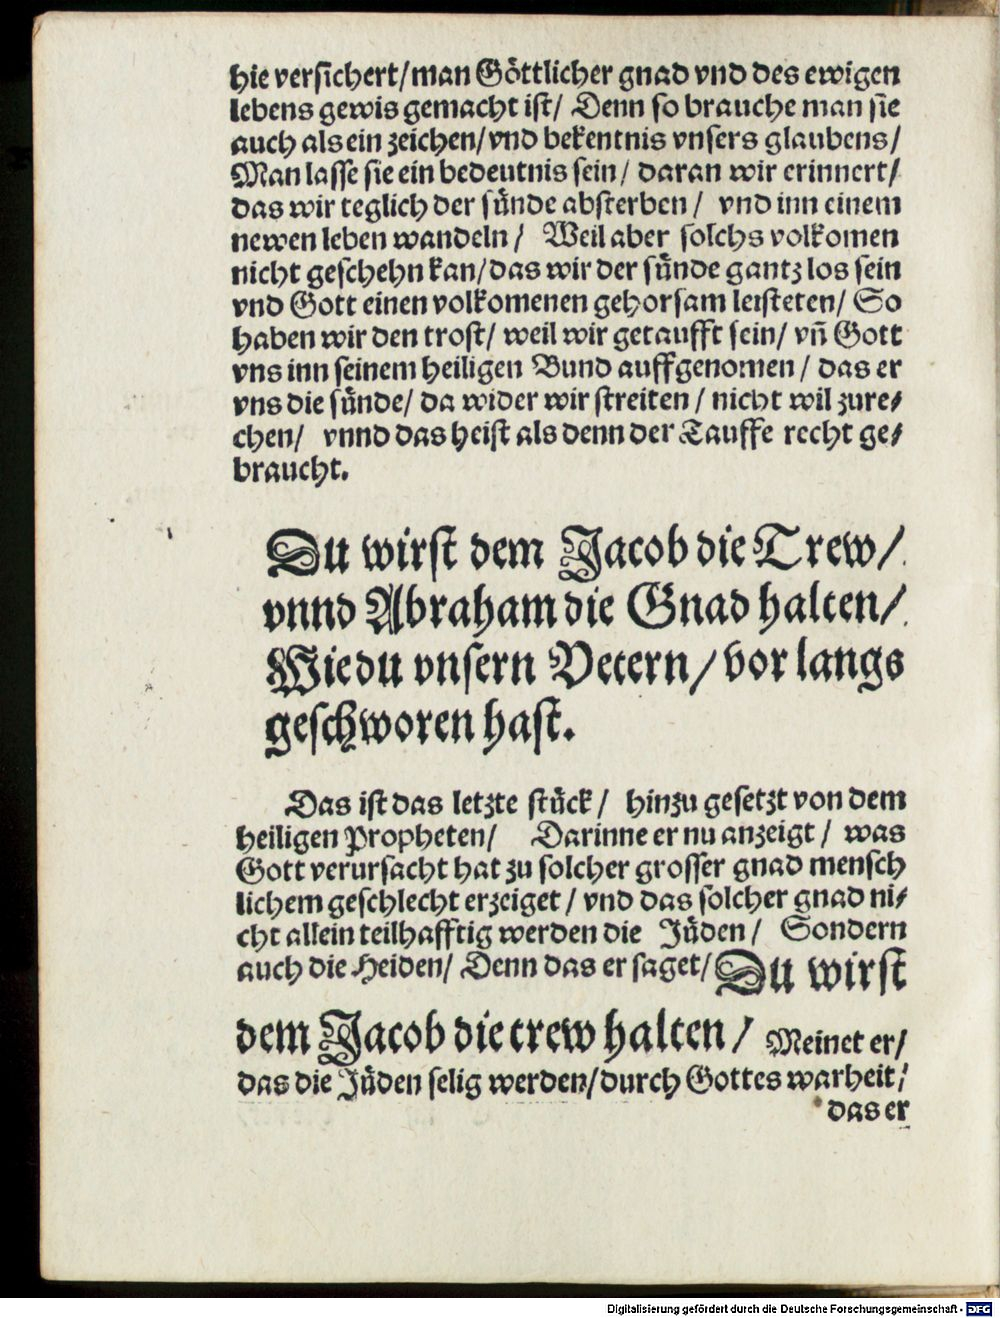 hie versichert/man Göttlicher gnad vnd des ewigen
lebens gewis gemacht ist/ Denn so brauche man sie
auch als ein zeichen/vnd bekentnis vnsers glaubens/
Man lasse sie ein bedeutnis sein/ daran wir erinnert/
das wir teglich der sünde absterben/ vnd inn einem
newen leben wandeln/ Weil aber solchs volkomen
nicht geschehn kan/das wir der sünde gantz los sein
vnd Gott einen volkomenen gehorsam leisteten/ So
haben wir den trost/ weil wir getaufft sein/ vñ Gott
vns inn seinem heiligen Bund auffgenomen/ das er
vns die sünde/ da wider wir streiten/ nicht wil zure⸗
chen/ vnnd das heist als denn der Tauffe recht ge⸗
braucht.
Du wirst dem Jacob die Trew/
vnnd Abraham die Gnad halten/
Wie du vnsern Vetern/vor langs
geschworen hast.
Das ist das letzte stück/ hinzu gesetzt von dem
heiligen Propheten/ Darinne er nu anzeigt/ was
Gott verursacht hat zu solcher grosser gnad mensch
lichem geschlecht erzeiget/ vnd das solcher gnad ni⸗
cht allein teilhafftig werden die Jüden/ Sondern
auch die Heiden/ Denn das er saget/ Du wirst
dem Jacob die trew halten/ Meinet er/
das die Jüden selig werden/durch Gottes warheit/
das er
Digitalisierung gefördert durch die Deutsche Forschungsgemeinschaft - DFG